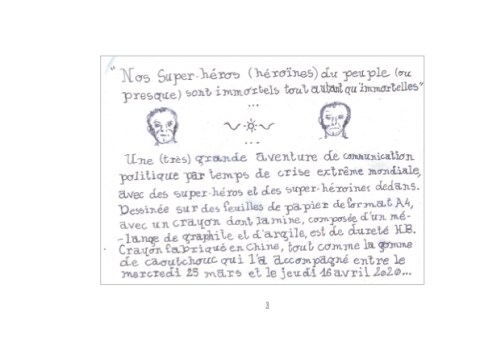 "Nos Super-héros (héroïnes) du peuple (ou
presque) sont immortels tout autant qu'immortelles"
...
...
Une (très) grande aventure de communication
politique par temps de crise extrême mondiale,
avec des super-héros et des super-héroïnes dedans.
Dessinée sur des feuilles de papier de format A4,
avec un crayon dont la mine, composée d'un mé-
-lange de graphite et d'argile, est de dureté H.B.
Crayon fabriqué en Chine, tout comme la gomme
de caoutchouc qui l'a accompagné entre le
mercredi 25 mars et le jeudi 16 avril 2020...
3